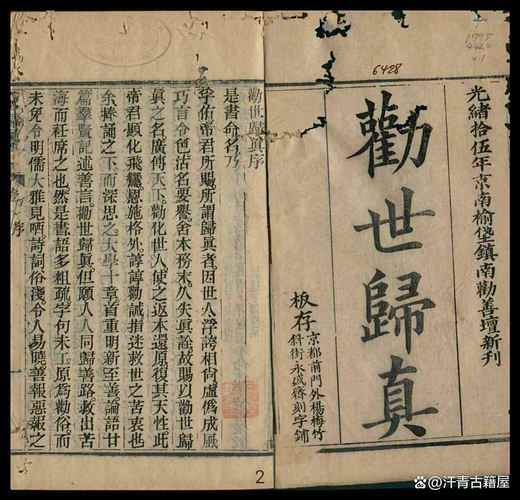 光緒拾伍年京南榆垡鎮南勸善壇新刊
勸世歸真
板存京都前門外楊梅竹
斜街永盛齋刻字鋪
6428
勸世歸真序
是書命名乃
孚佑帝君所賜所謂歸真者因世人浮誇相尚虛僞成風
巧言令色沽名要譽舍本務末久失真訟故賜以勸世歸
真之名廣傳天下勸化世人使之返本還原復其天性此
帝君顯化飛鸞恩施格外諄諄勸誡指迷救世之苦衷也
余捧誦之下而深思之大學十章首重明新至善論語廿
篇畢覽記述善言勸世歸真但願人人同歸善路救出苦
海而衽席之也然是書語多粗疏字句未工原為勸俗而
未免令明儒大雅見哂詩詞俗淺令人易曉善報惡報之
序
2
头条@汗青古籍屋